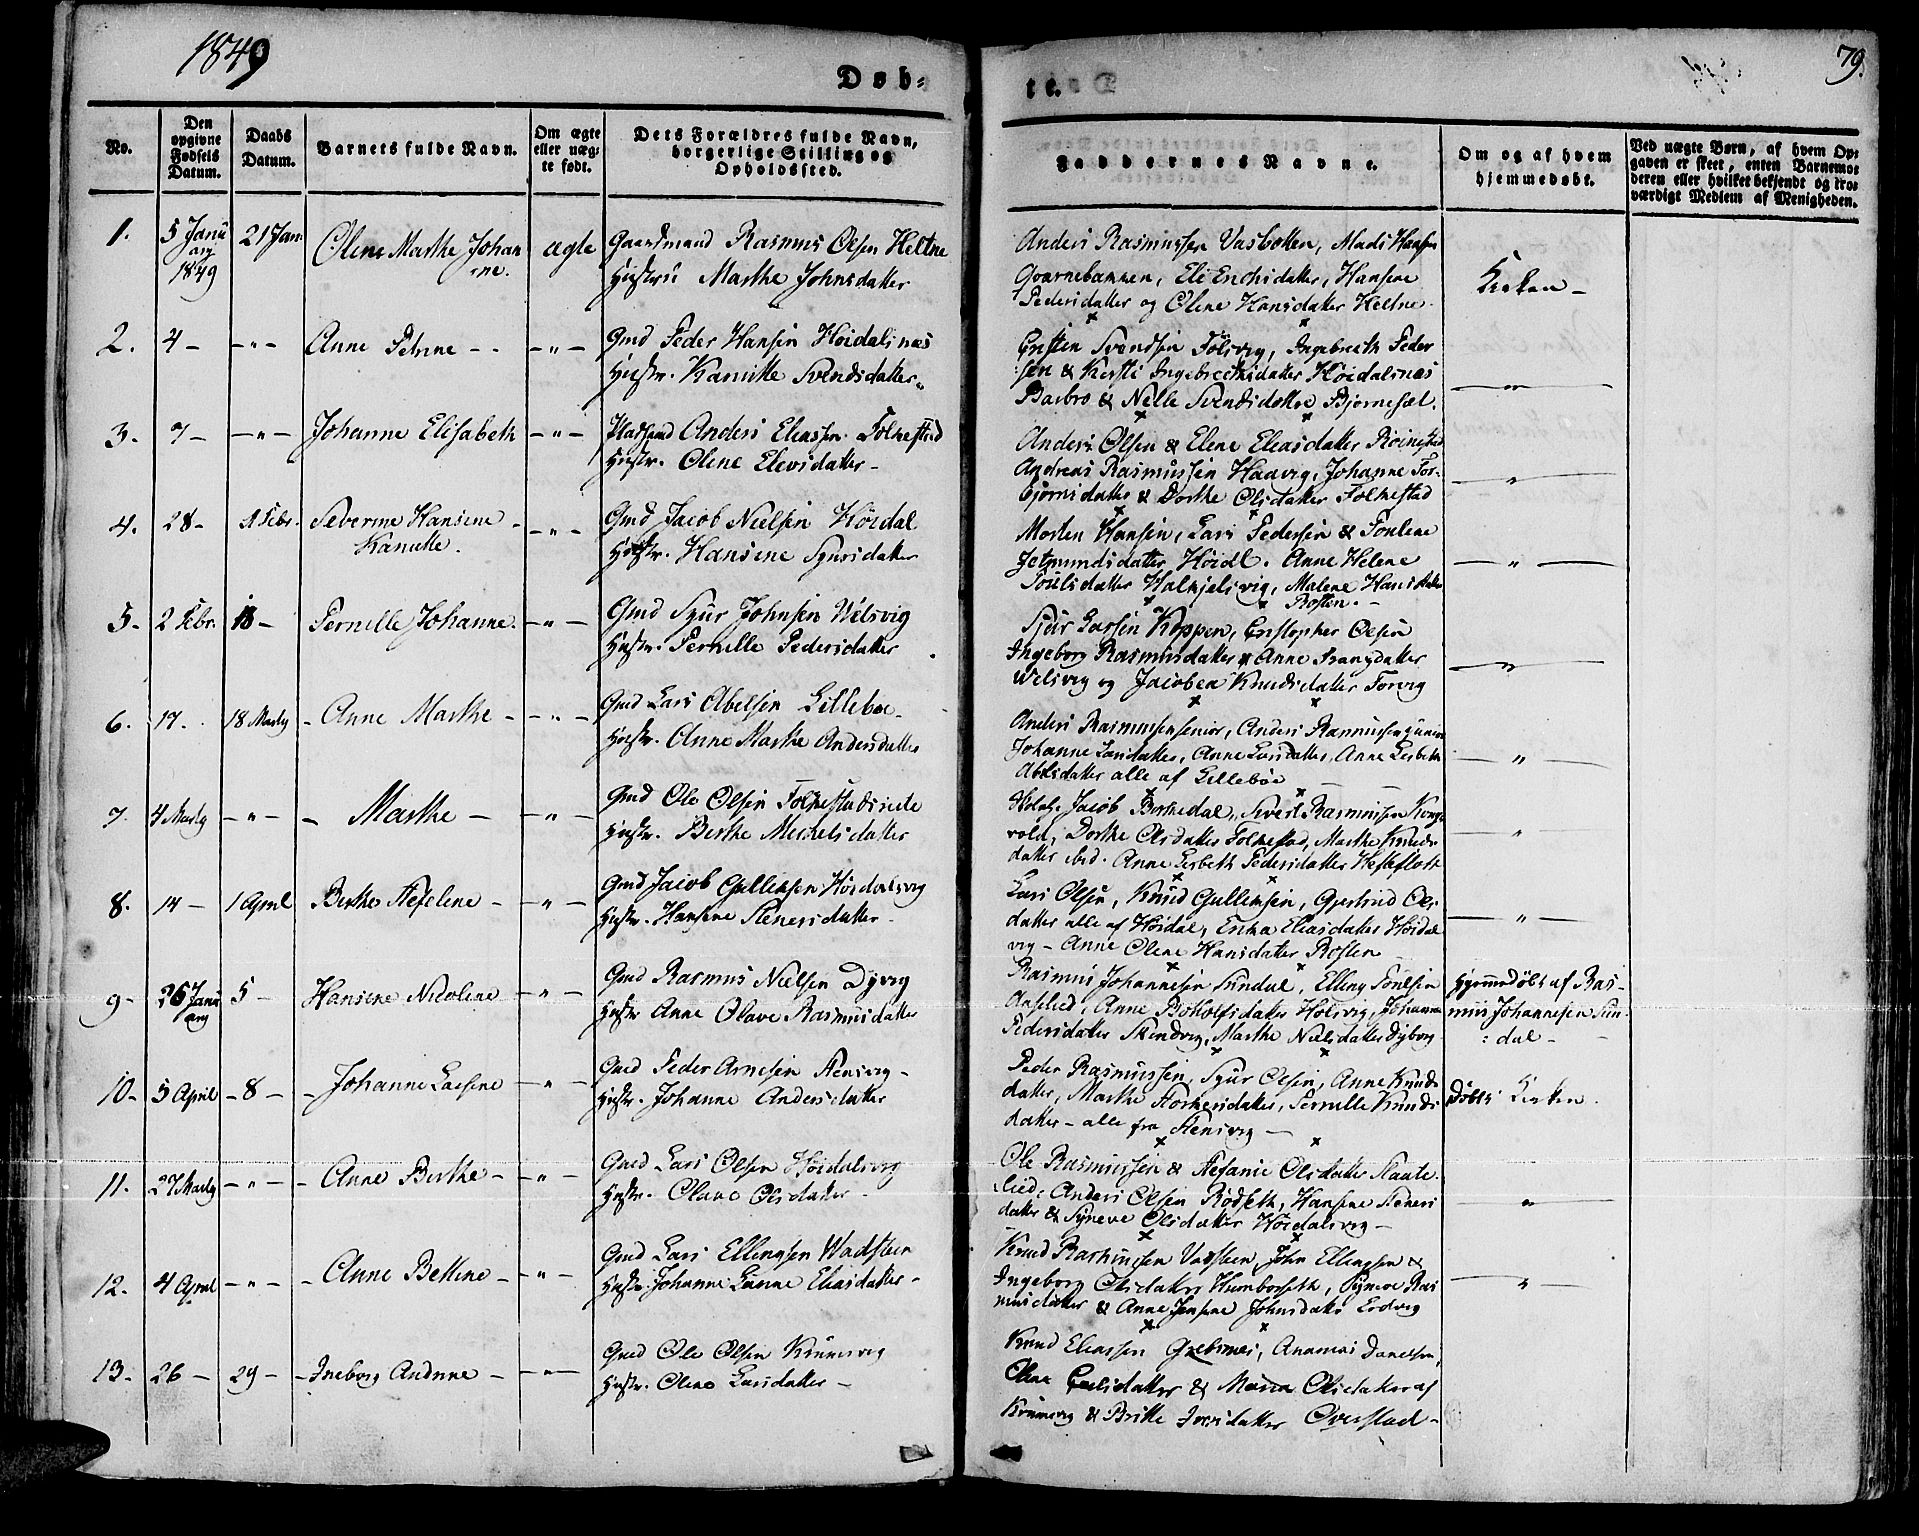 1849
79.
Døb-
te.
No.
Den
opgivne
Fødsels
Datum.
Daabs
Datum.
Barnets fulde Navn.
Om ægte
eller uæg-
te født.
Dets Forældres fulde Navn,
borgerlige Stilling og
Opholdssted.
Faddernes Navne.
Om og af hvem
hjemmedøbt.
Ved uægte Børn, af hvem Op-
gaven er skeet, enten Barnemo-
deren eller hvilket bekjendt og tro-
værdigt Medlem af Menigheden.
1.
5 Janu
arj
1849
21 Jan.
Oline Marthe Johan
ne.
ægte
Gaardmand Rasmus Olsen Heltne
Hustru Marthe Johnsdatter
Anders Rasmussen Vasbotten, Mads Hansen
Qvarnebakken, Eli Enochsdatter, Hansine
Pedersdatter og Oline Hansdatter Heltne.
Kirken -
2.
4 -
- " -
Anne Petrine - -
- " -
Gmd Peder Hansen Høidalsnæs
Hustr. Kanutte Svendsdatter
Cristen Svendsen Følsvig, Ingebreth Peder
sen & Kersti Ingebrethsdatter Høidalsnæs
Barbro & Nille Svendsdøttre Bjørnesæt.
"
3.
7 -
- " -
Johanne Elisabeth
- " -
Pladsmd Anders Eliassen Folkestad
Hustr. Oline Elevsdatter -
Anders Olsen & Elene Eliasdatter
Andreas Rasmussen Haavig, Johanne Tor-
bjørnsdatter & Dorthe Olsdatter Folkestad
"
4.
28 -
Febr.
Severine Hansine
Kanutte.
- " -
Gmd Jacob Nielsen Høidal
Hustr. Hansine Syursdatter
Morten Hansen, Lars Pedersen & Pouline
Jetmundsdatter Høidl. Anne Helene
Poulsdatter Halkjelsvig, Malene Hansdatter
Rosten. -
- " -
5.
2 Febr.
18 -
Pernille Johanne.
- " -
Gmd Syur Johnsen Welsvig
Hustr. Pernille Pedersdatter
Sjur Larsen Koppen, Cristopher Olsen
Ingeborg Rasmusdatter & Anne Frantzdatter
Welsvig og Jacobea Knudsdatter Torvig
"
6.
17.
18 Marty
- Anne Marthe -
- " -
Gmd Lars Abelsen Lillebøe
Hustr. Anne Marthe Andersdatter
Anders Rasmussen senior, Anders Rasmussen junior
Johanne Larsdatter, Anne Larsdatter, Anne Lisbeth
Abelsdatter alle af Lillebøe
- " -
7.
4 Marty
- " -
- Marthe -
- " -
Gmd Ole Olsen Folkestadsæte
Hustr. Berthe Michelsdatter
Jacob Birkedal, Sivert Rasmussen Kongs
vold, Dorthe Olsdatter Folkestad, Marthe Knuds
datter ibid. Anne Lisbeth Pedersdatter Hesteflott
"
8.
14 -
1 April
Berthe Stefeline -
- " -
Gmd Jacob Gulliksen Høidalsvig
Hustr. Hansine Stenersdatter -
Lars Olsen, Knud Gulliksen, Gjertrud Ols
datter alle af Høidal, Ericka Eliasdatter Høidals
vig - Anne Oline Hansdatter Rosten
- " -
9 -
26 Janu
arj
5 -
Hansine Nicoline
- " -
Gmd Rasmus Nielsen Dyvig
Hustr Anne Olave Rasmusdatter
Rasmus Johannesen Sundal, Elling Poulsen
Aaslied, Anne Botholfsdatter Holsvig, Johanne
Pedersdatter Stendvig, Marthe Nielsdatter Dyvig
Hjemmedøbt af Ras-
mus Johannesen Sun-
: dal -
10 -
5 April
- 8 -
- Johanne Larsine
- " -
Gmd Peder Arnesen Stensvig -
Hustr. Johanne Andersdatter
Peder Rasmussen, Syur Olsen, Anne Knuds
datter, Marthe Torkersdatter, Pernille Knuds
datter - alle fra Stensvig -
Døbt i Kirken.
11.
27 Marty
- " -
- Anne Berthe -
- " -
Gmd Lars Olsen Høidalsvig
Hustr. Olave Olsdatter -
Ole Rasmussen & Stefanie Olsdatter Slaate-
lied, Anders Olsen Rødseth, Hansine Steners
datter & Syneve Olsdatter Høidalsvig -
"
12.
4 April
- " -
- Anne Bettine -
- " -
Gmd Lars Ellingsen Wadsteen
Hustr. Johanne Lanne Eliasdatter -
Knud Rasmussen Vadsteen, John Ellingsen &
Ingeborg Olsdatter Humborseth, Synøve Ras
musdatter & Anne Jensine Johnsdatter Lodvig
"
13.
26 -
29 -
- Ineborg Andrine -
- " -
Gmd Ole Olsen Krumsvig
Hustr. Oline Larsdatter -
Knud Eliassen Grebsnæs, Ananias Danielsen,
Oline Carlsdatter & Maria Olsdatter af
Krumsvig & Britte Iversdatter Øvrestad -